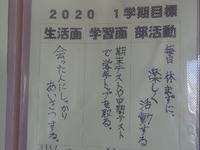 2020 1学期目標
生活面 学習面 部活動
毎日休まずに、
楽しく活動する
期末テストや中間テスト
で
を取る。
会った人にしっかり
あいさつする。